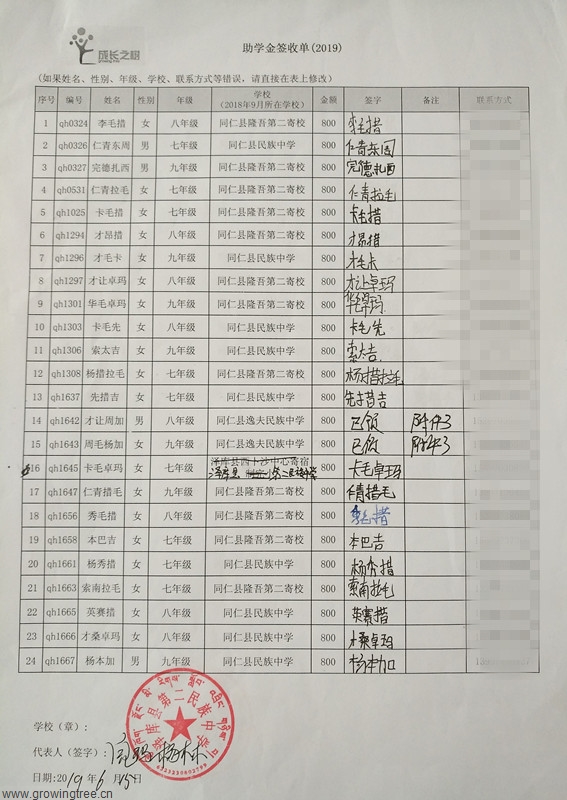 成长之树
助学金签收单(2019)
(如果姓名、性别、年级、学校、联系方式等错误，请直接在表上修改)
序号 编号 姓名 性别 年级 学校（2018年9月所在学校） 金额 签字 备注 联系方式
1 qh0324 李毛措 女 八年级 同仁县隆吾第二寄校 800 李毛措
2 qh0326 仁青东周 男 七年级 同仁县民族中学 800 仁青东周
3 qh0327 完德扎西 男 九年级 同仁县隆吾第二寄校 800 完德扎西
4 qh0531 仁青拉毛 女 七年级 同仁县隆吾第二寄校 800 仁青拉毛
5 qh1025 卡毛措 女 七年级 同仁县隆吾第二寄校 800 卡毛措
6 qh1294 才昂措 女 八年级 同仁县隆吾第二寄校 800 才昂措
7 qh1296 才毛卡 女 九年级 同仁县民族中学 800 才毛卡
8 qh1297 才让卓玛 女 八年级 同仁县隆吾第二寄校 800 才让卓玛
9 qh1301 华毛卓玛 女 九年级 同仁县隆吾第二寄校 800 华毛卓玛
10 qh1303 卡毛先 女 八年级 同仁县民族中学 800 卡毛先
11 qh1306 索太吉 女 九年级 同仁县民族中学 800 索太吉
12 qh1308 杨措拉毛 女 七年级 同仁县隆吾第二寄校 800 杨措拉毛
13 qh1637 先措吉 女 七年级 同仁县民族中学 800 先措吉
14 qh1642 才让周加 男 八年级 同仁县逸夫民族中学 800 已领 附件3
15 qh1643 周毛杨加 女 九年级 同仁县逸夫民族中学 800 已领 附件3
16 qh1645 卡毛卓玛 女 七年级 泽库县西卜沙中心寄宿制完小 泽库县第二民族中学 800 卡毛卓玛
17 qh1647 仁青措毛 女 九年级 同仁县民族中学 800 仁青措毛
18 qh1656 秀毛措 女 八年级 同仁县隆吾第二寄校 800 秀毛措
19 qh1658 本巴吉 女 七年级 同仁县民族中学 800 本巴吉
20 qh1661 杨秀措 女 七年级 同仁县民族中学 800 杨秀措
21 qh1663 索南拉毛 女 七年级 同仁县隆吾第二寄校 800 索南拉毛
22 qh1665 英赛措 女 八年级 同仁县民族中学 800 英赛措
23 qh1666 才桑卓玛 女 八年级 同仁县民族中学 800 才桑卓玛
24 qh1667 杨本加 男 九年级 同仁县民族中学 800 杨本加
学校（章）：
泽库县第二民族中学
代表人（签字）：
日期:2019年6月15日
www.growingtree.cn